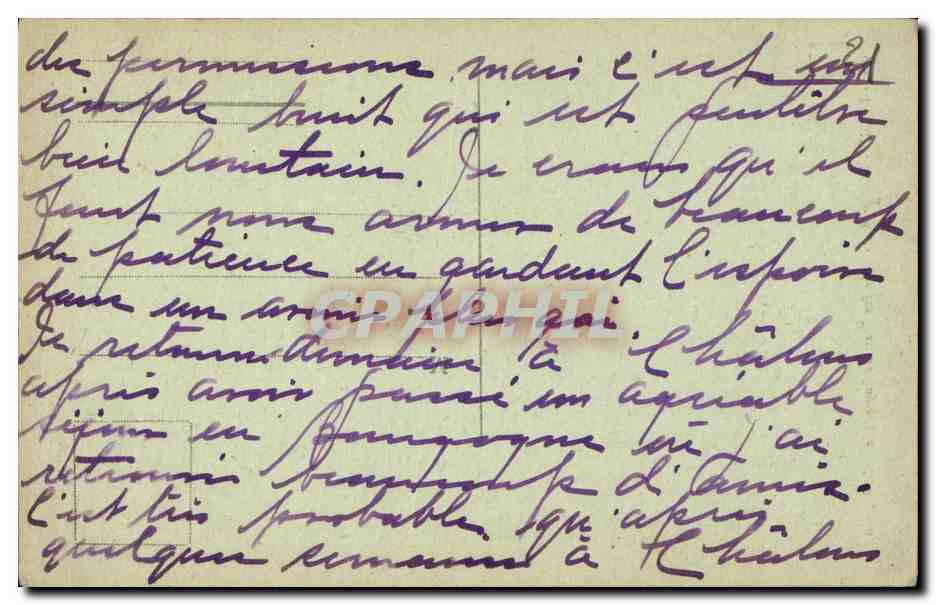 des permissions mais c'est un
simple bruit qui est peutêtre
bien lointain. Je crois qu'il
faut nous armer de beaucoup
de patience en gardant l'espoir
dans un avenir plus gai.
CPAPHIL
Je retourne demain à Châlons
après avoir passé un agréable
séjour en Bourgogne où j'ai
retrouvé beaucoup d'amis.
C'est très probable qu'après
quelques semaines à Châlons